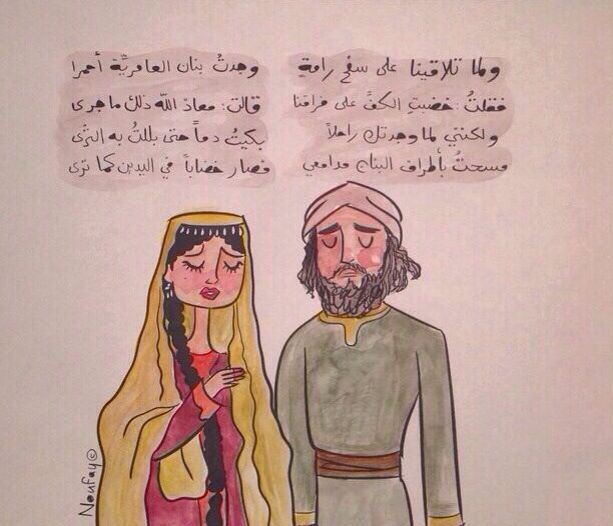 ولما تلاقينا على سفح رامةٍ وجدتُ بنان العامريَّة أحمرا
فقلتُ: خضبتِ الكفَّ على فراقنا قالت: معاذ اللّه ذلك ما جرى
ولكنني لما وجدتك راحلاً بكيتُ دماً حتى بللتُ به الثرى
مسحتُ بأطراف البنان مدامعي فصار خضاباً في اليدين كما ترى
Noufay©